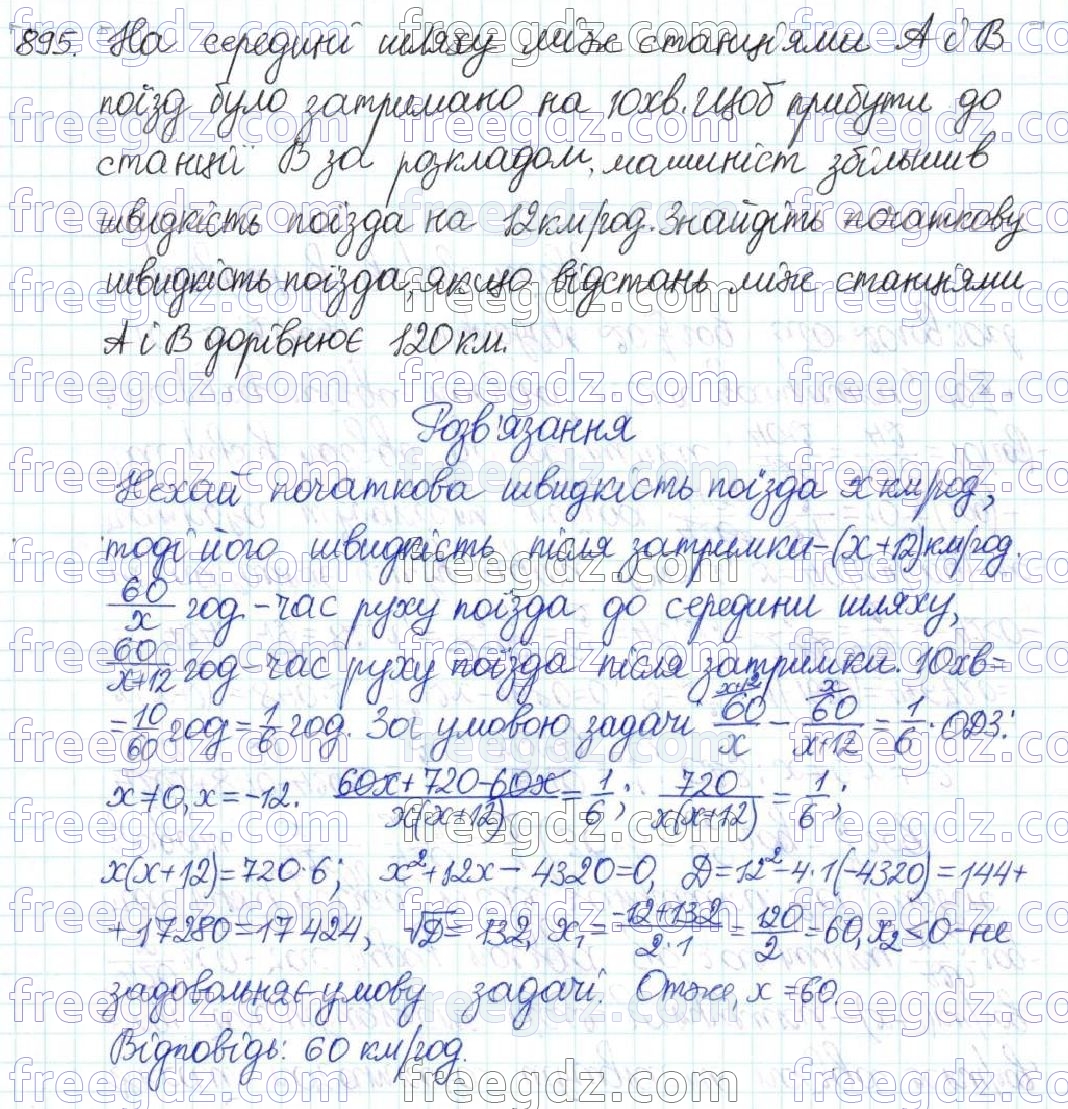 895. На середині шляху між станціями А і В
поїзд було затримано на 10хв. Щоб прибути до
станції В за розкладом, машиніст збільшив
швидкість поїзда на 12 км/год. Знайдіть початкову
швидкість поїзда, якщо відстань між станціями
А і В дорівнює 120 км.
Розв'язання
Нехай початкова швидкість поїзда x км/год,
тоді його швидкість після затримки-(x+12) км/год.
60/x год - час руху поїзда до середини шляху,
60/(x+12) год - час руху поїзда після затримки. 10хв=
=10/60 год = 1/6 год. За умовою задачі 60/x - 60/(x+12) = 1/6. ОДЗ:
x≠0, x=-12. (60x+720-60x)/(x(x+12)) = 1/6; 720/(x(x+12)) = 1/6;
x(x+12)=720·6; x²+12x-4320=0, D=12²-4·1(-4320)=144+
+17280=17424, √D=132, x₁=(-12+132)/(2·1)=120/2=60, x₂<0-не
задовольняє умову задачі. Отже, x=60.
Відповідь: 60 км/год.
freegdz.com